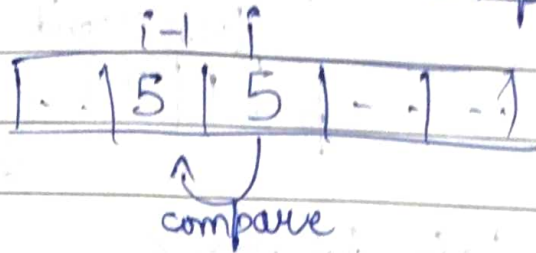 i-1 i
. . 5 5 - . - .
compare